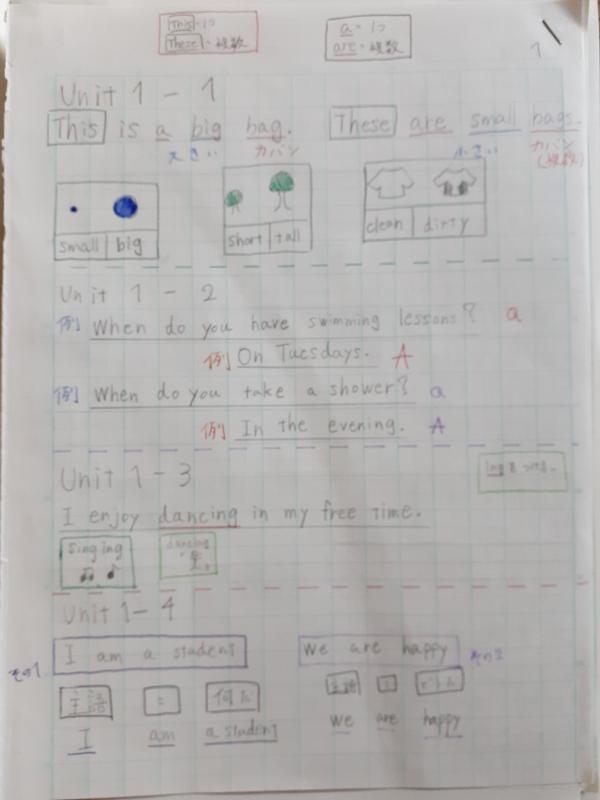 This = 1つ
These = 複数
a = 1つ
are = 複数
1
Unit 1 - 1
This is a big bag. These are small bags.
大きい カバン 小さい カバン
(複数)
small big
short tall
clean dirty
Unit 1 - 2
例 When do you have swimming lessons? a
例 On Tuesdays. A
例 When do you take a shower? a
例 In the evening. A
Unit 1 - 3
ingをつける。
I enjoy dancing in my free time.
singing dancing
Unit 1 - 4
その1 I am a student we are happy その2
主語 = 何だ 主語 =
I am a student we are happy